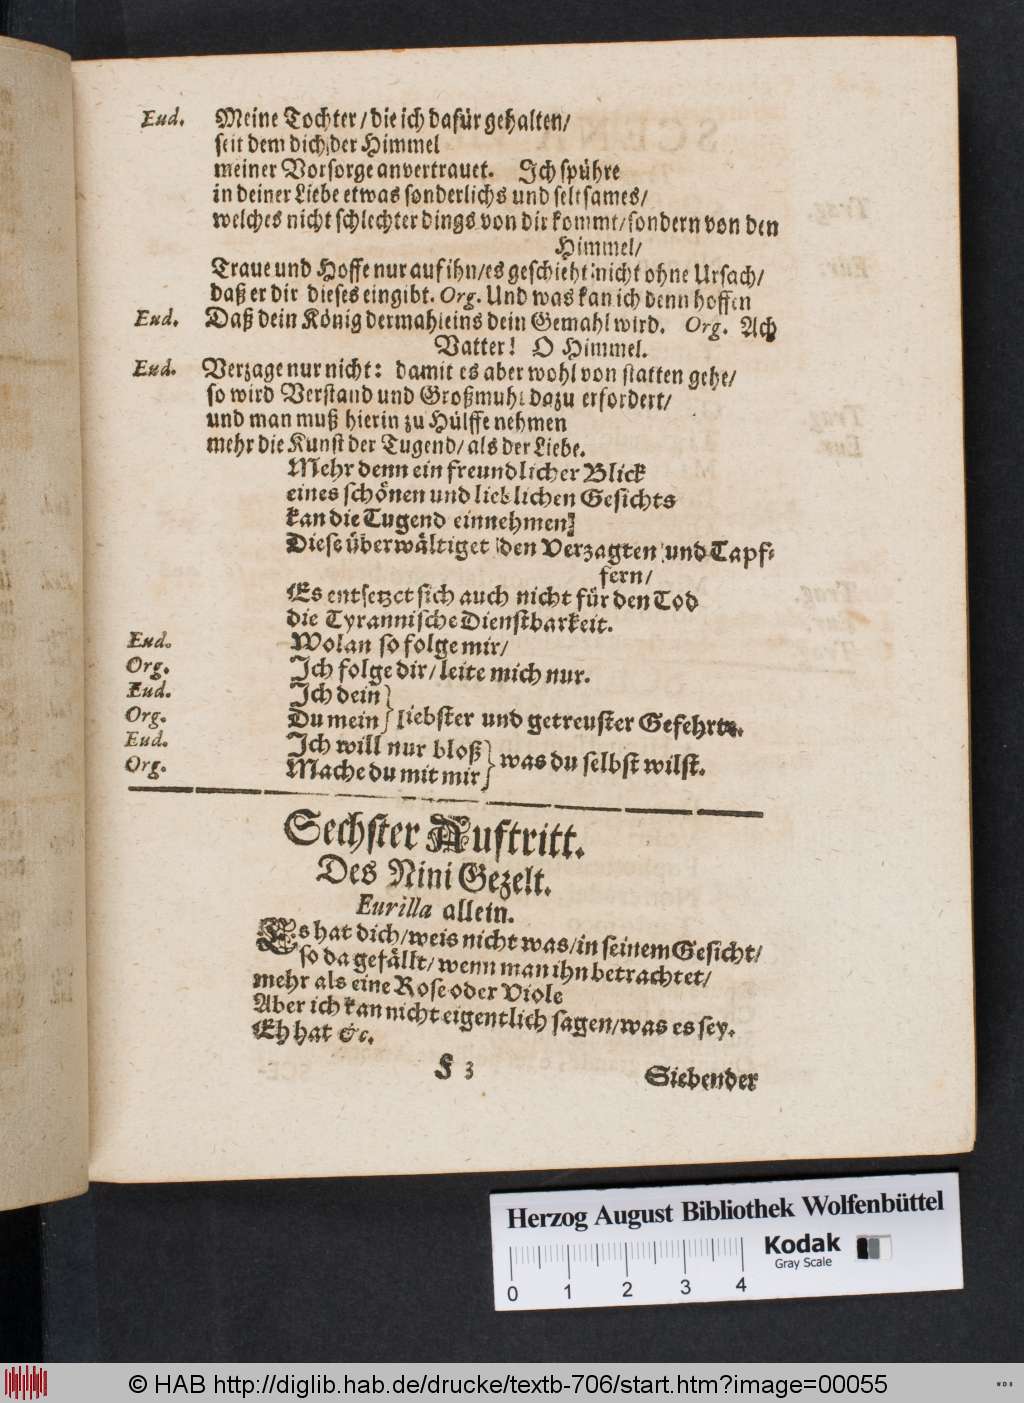 Eud. Meine Tochter/ die ich dafür gehalten/
seit dem dich der Himmel
meiner Vorsorge anvertrauet. Ich spühre
in deiner Liebe etwas sonderlichs und seltsames/
welches nicht schlechter dings von dir kommt/ sondern von den
Himmel/
Traue und Hoffe nur auf ihn/ es geschieht nicht ohne Ursach/
daß er dir dieses eingibt. Org. Und was kan ich denn hoffen
Eud. Daß dein König dermahleins dein Gemahl wird. Org. Ach
Vatter! O Himmel.
Eud. Verzage nur nicht: damit es aber wohl von statten gehe/
so wird Verstand und Großmuht dazu erfordert/
und man muß hierin zu Hülffe nehmen
mehr die Kunst der Tugend/ als der Liebe.
Mehr denn ein freundlicher Blick
eines schönen und lieblichen Gesichts
kan die Tugend einnehmen
Diese überwältiget den Verzagten und Tapf-
fern/
Es entsetzet sich auch nicht für den Tod
die Tyrannische Dienstbarkeit.
Eud. Wolan so folge mir/
Org. Ich folge dir/ leite mich nur.
Eud. Ich dein }
Org. Du mein } liebster und getreuster Gefehrte.
Eud. Ich will nur bloß }
Org. Mache du mit mir } was du selbst wilst.
Sechster Auftritt.
Des Nini Gezelt.
Eurilla allein.
Es hat dich/ weis nicht was/ in seinem Gesicht/
so da gefällt/ wenn man ihn betrachtet/
mehr als eine Rose oder Viole
Aber ich kan nicht eigentlich sagen/ was es sey.
Eh hat &c.
F 3 Siebender
Herzog August Bibliothek Wolfenbüttel
Kodak
Gray Scale
0 1 2 3 4
© HAB http://diglib.hab.de/drucke/textb-706/start.htm?image=00055